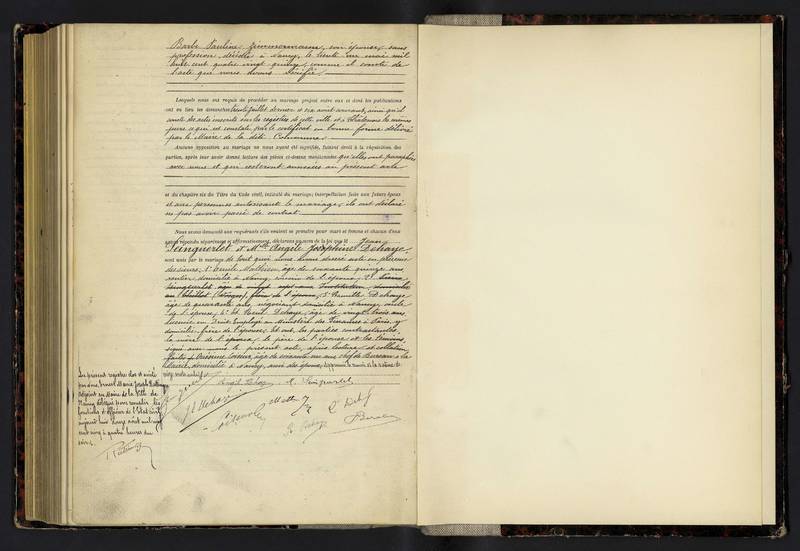 Barbe Pauline Zimmermann, son épouse, sans
profession, décédée à Nancy, le trente un mai mil
huit cent quatre vingt quinze, comme il conste de
l'acte que nous avons vérifié.
Lesquels nous ont requis de procéder au mariage projeté entre eux et dont les publications
ont eu lieu les dimanches trente Juillet dernier et six août courant, ainsi qu'il
conste des actes inscrits sur les registres de cette ville et à les mêmes
jours ce qui est constaté par le certificat en bonne forme délivré
par le Maire de la dite Commune.
Aucune opposition au mariage ne nous ayant été signifiée, faisant droit à la réquisition des
parties, après leur avoir donné lecture des pièces ci-dessus mentionnées qu'elles ont paraphées
avec nous et qui resteront annexées au présent acte
et du chapitre six du Titre du Code civil, intitulé du mariage; interpellation faite aux futurs époux
et aux personnes autorisant le mariage, ils ont déclaré
ne pas avoir passé de contrat.
Nous avons demandé aux requérants s'ils veulent se prendre pour mari et femme et chacun d'eux
ayant répondu séparément et affirmativement, déclarons au nom de la loi que M Jean
Seinguerlet et Mlle Angèle Joséphine Dehaye
sont unis par le mariage de tout quoi nous avons dressé acte en présence
des sieurs, 1° Emile Mathieu, âgé de soixante quinze ans
rentier, domicilié à Nancy, cousin de l'épouse, 2°
Seinguerlet, âgé de vingt sept ans, Instituteur, domicilié
au Thillot (Vosges), frère de l'époux, 3° Camille Dehaye
âgé de quarante ans, négociant domicilié à Nancy, oncle
de l'épouse, 4° et Dehaye, âgé de vingt trois ans
licencié en Droit Employé au Ministère des Finances à Paris, y
domicilié, frère de l'épouse. Et ont, les parties contractantes,
la mère de l'époux, le père de l'épouse et les témoins
signé avec nous le présent acte, après lecture et collation
âgé de soixante un ans chef de Bureau à la
Mairie, domicilié à Nancy, ami des époux,
Le présent registre clos et arrêté
par nous, Ernest Marie Joseph
adjoint au Maire de la Ville de
Nancy délégué pour remplir les
fonctions d'officier de l'Etat Civil
aujourd'hui douze août mil neuf
cent cinq à quatre heures du
soir.
Angèle Dehaye
Seinguerlet